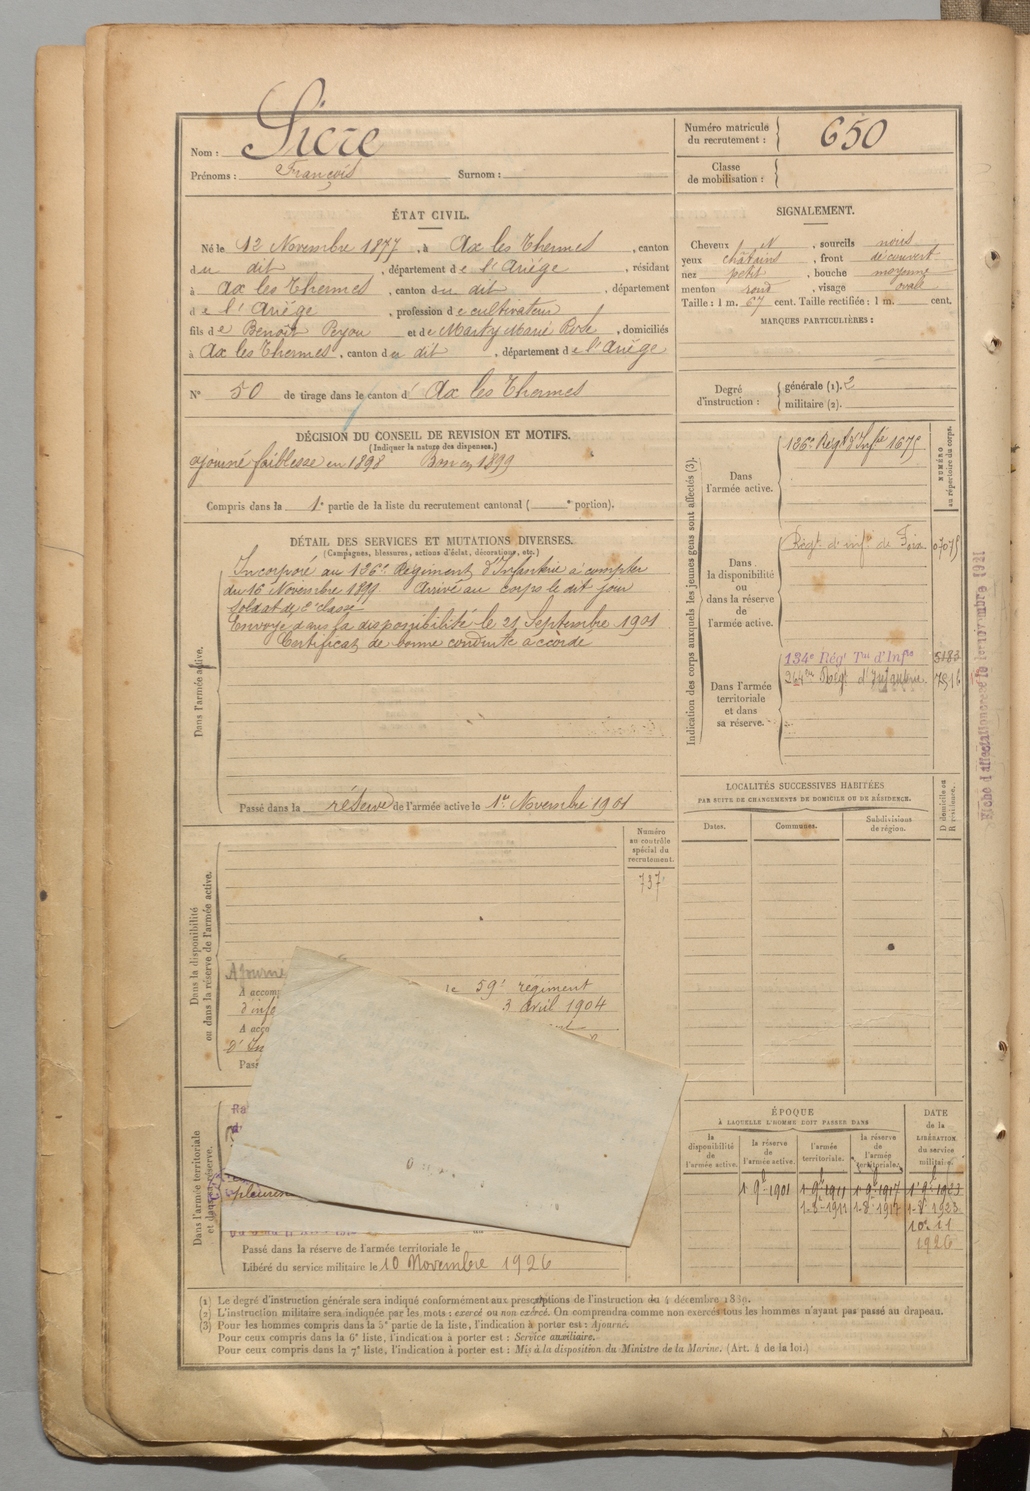 Nom : Sicre
Prénoms : François Surnom :
Numéro matricule du recrutement : 650
Classe de mobilisation :
ÉTAT CIVIL.
Né le 12 Novembre 1877, à Ax les Thermes, canton
du dit, département de l'Ariége, résidant
à Ax les Thermes, canton du dit, département
de l'Ariége, profession de cultivateur
fils de Benoit Peyou et de Marty Marie Rose, domiciliés
à Ax les Thermes, canton du dit, département de l'Ariége
N° 50 de tirage dans le canton d' Ax les Thermes
SIGNALEMENT.
Cheveux N, sourcils noirs
yeux châtains, front découvert
nez petit, bouche moyenne
menton rond, visage ovale
Taille : 1 m. 67 cent. Taille rectifiée : 1 m. cent.
MARQUES PARTICULIÈRES :
Degré d'instruction : générale (1). 2
militaire (2).
DÉCISION DU CONSEIL DE REVISION ET MOTIFS.
(Indiquer la nature des dispenses.)
ajourné faiblesse en 1898 Bon en 1899
Compris dans la 1e partie de la liste du recrutement cantonal ( e portion).
DÉTAIL DES SERVICES ET MUTATIONS DIVERSES.
(Campagnes, blessures, actions d'éclat, décorations, etc.)
Dans l'armée active.
Incorporé au 136e Régiment d'Infanterie à compter
du 16 Novembre 1899. Arrivé au corps le dit jour
Soldat de 2e classe
Envoyé dans la disponibilité le 21 Septembre 1901
Certificat de bonne conduite accordé
Passé dans la réserve de l'armée active le 1er Novembre 1901
Indication des corps auxquels les jeunes gens sont affectés (3).
NUMÉRO au répertoire du corps.
Dans l'armée active.
136e Régt d'Infie 1675
Dans la disponibilité ou dans la réserve de l'armée active.
Régt d'infie de Foix 07075
Dans l'armée territoriale et dans sa réserve.
134e Régt Tal d'Infie 5183
Régt d'Infanterie
Fiche d'affectation créée le 1er novembre 1921
LOCALITÉS SUCCESSIVES HABITÉES
PAR SUITE DE CHANGEMENTS DE DOMICILE OU DE RÉSIDENCE.
Dates. Communes. Subdivisions de région. D domicile ou R résidence.
Numéro au contrôle spécial du recrutement.
737
Dans la disponibilité ou dans la réserve de l'armée active.
Ajourné
A accom le 59e régiment
d'infa 3 avril 1904
A acco
D' In
Pass
Dans l'armée territoriale et dans sa réserve.
Ra
Passé dans la réserve de l'armée territoriale le
Libéré du service militaire le 10 Novembre 1926
ÉPOQUE
À LAQUELLE L'HOMME DOIT PASSER DANS
la disponibilité de l'armée active. la réserve de l'armée active. l'armée territoriale. la réserve de l'armée territoriale.
DATE de la LIBÉRATION du service militaire.
1 9e 1901 1 9e 1911 1 9e 1917 1 9e 1923
1-8-1911 1-8e 1917 1-8e 1923
10-11
1926
(1) Le degré d'instruction générale sera indiqué conformément aux prescriptions de l'instruction du 4 décembre 1889.
(2) L'instruction militaire sera indiquée par les mots : exercé ou non exercé. On comprendra comme non exercés tous les hommes n'ayant pas passé au drapeau.
(3) Pour les hommes compris dans la 5e partie de la liste, l'indication à porter est : Ajourné.
Pour ceux compris dans la 6e liste, l'indication à porter est : Service auxiliaire.
Pour ceux compris dans la 7e liste, l'indication à porter est : Mis à la disposition du Ministre de la Marine. (Art. 4 de la loi.)